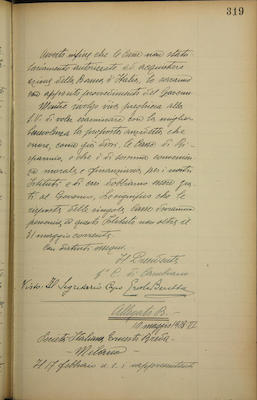 319
Avverto infine che le Casse non statu-
tariamente autorizzate ad acquistare
azioni della Banca d'Italia, lo saranno
con apposito provvedimento del Governo.
Mentre rivolgo viva preghiera alla
S.V. di voler esaminare con la miglior
benevolenza la proposta anzidetta che
onora, come già dissi, le Casse di Ri-
sparmio, e che è di somma convenien-
za morale e finanziaria per i nostri
Istituti e di cui dobbiamo essere gra-
ti al Governo, La significo che le
risposte delle singole Casse dovranno
pervenire a questo Istituto non oltre il
31 maggio corrente.
Con distinti ossequi.
Il Presidente
f° C. di
Visto: Il Segretario Capo
Allegato B.
10 maggio 1928-VI
Società Italiana Ernesto Breda
- Milano -
Il 17 febbraio u.s. i rappresentanti